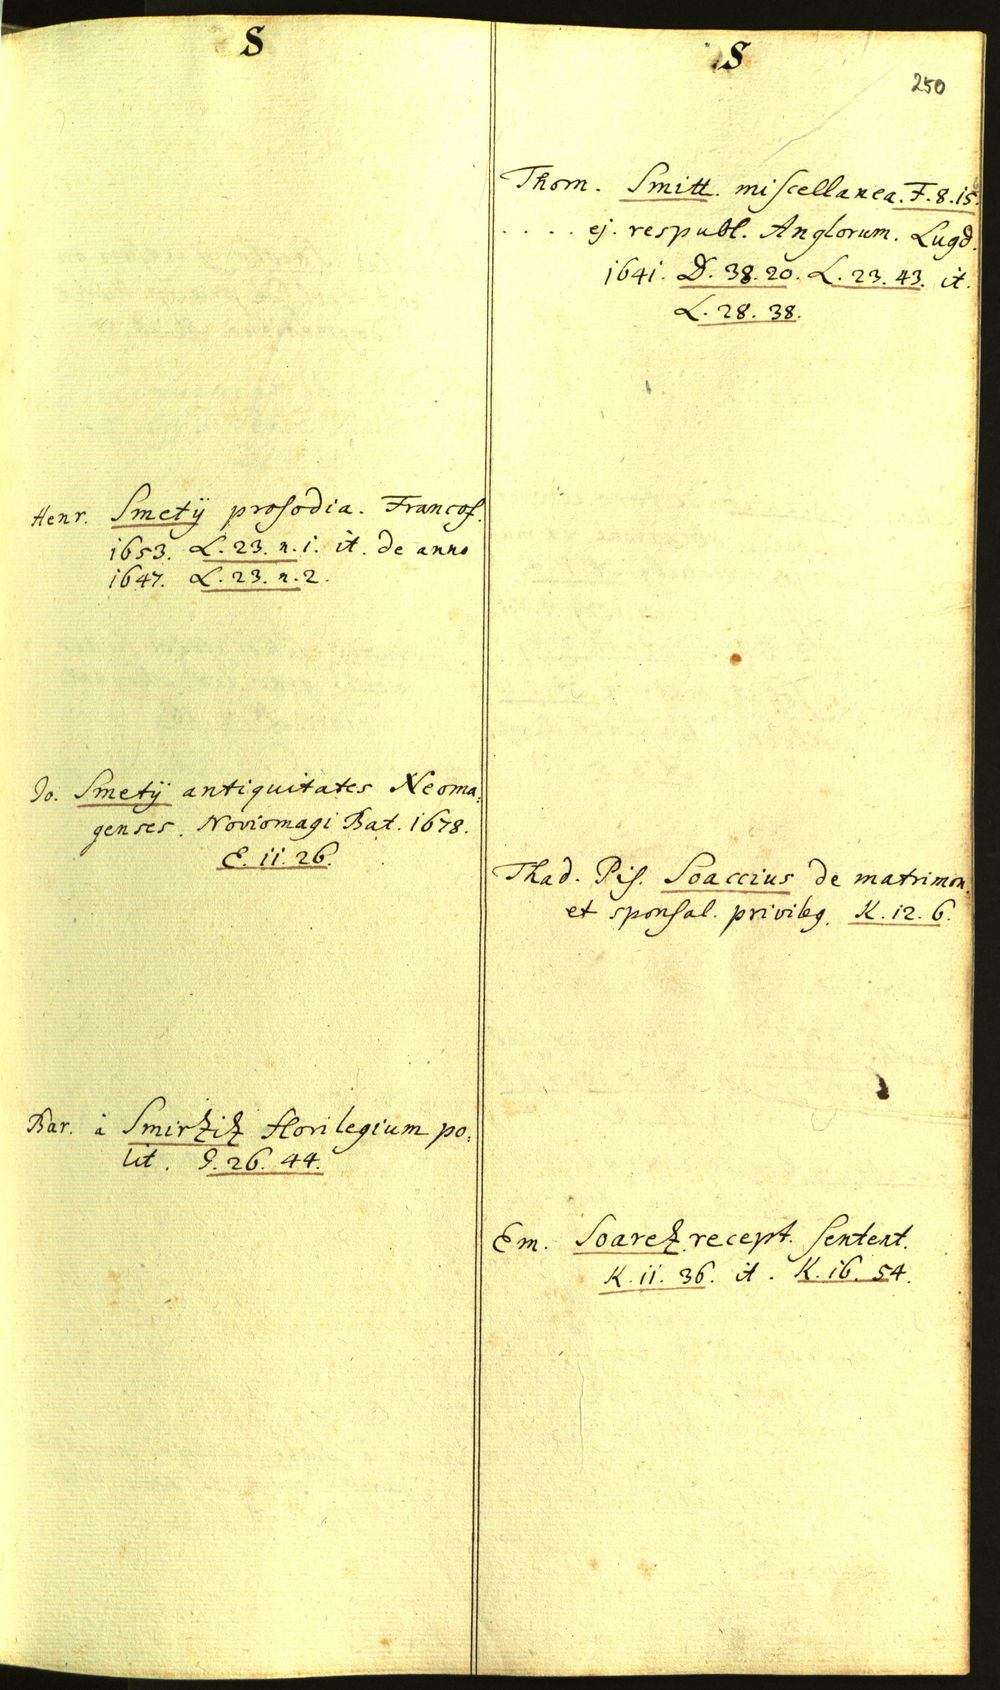 S
Henr. Smetÿ prosodia. Francof.
1653. L. 23. n. 1. it. de anno
1647. L. 23. n. 2.
Jo. Smetÿ antiquitates Neoma:
genses. Noviomagi Bat. 1678.
E. 11. 26.
Bar. à Smirziz florilegium po:
lit. G. 26. 44.
S
250
Thom. Smitt. miscellanea. F. 8. 15.
. . . . ej. respubl. Anglorum. Lugd.
1641. D. 38. 20. L. 23. 43. it.
L. 28. 38.
Thad. Pis. Soaccius de matrimon.
et sponsal. privileg. K. 12. 6.
Em. Soarez recept. sentent.
K. 11. 36. it. K. 16. 54.